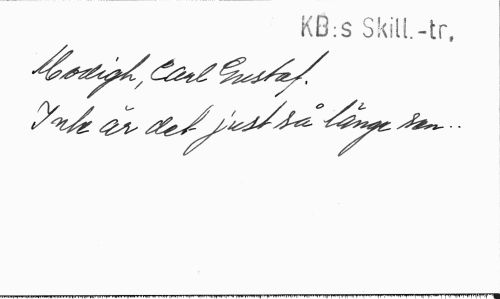 KB:s Skill.-tr.
Modigh, Carl Gustaf.
Inte är det just så länge sen..